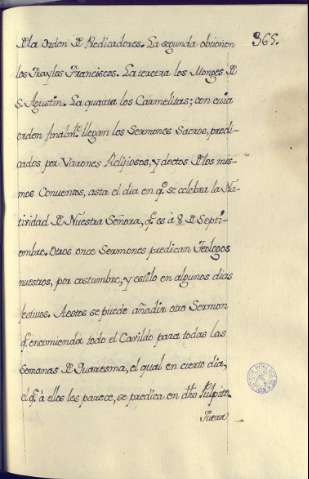 365.
De la Orden De Predicadores. La segunda obtienen
los Frayles Franciscos. La tercera los Monges De
S. Agustin. La quarta los Carmelitas; con cuia
orden finalmte. llegan los Sermones Sacros, predi-
cados por Varones Relijiosos, y doctos De los mis-
mos Conventos, asta el dia en q.e se celebra la Na-
tividad De Nuestra Señora, q.e es à 8. De Septi-
embre. Otros once Sermones predican Teologos
nuestros, por costumbre, y estilo en algunos dias
festivos. A estos se puede añadir otro Sermon
q.e encomienda todo el Cavildo para todas las
Semanas De Quaresma, el qual en cierto dia,
el q.e à ellos les parece, se predica en dho Pulpito.
Fuera